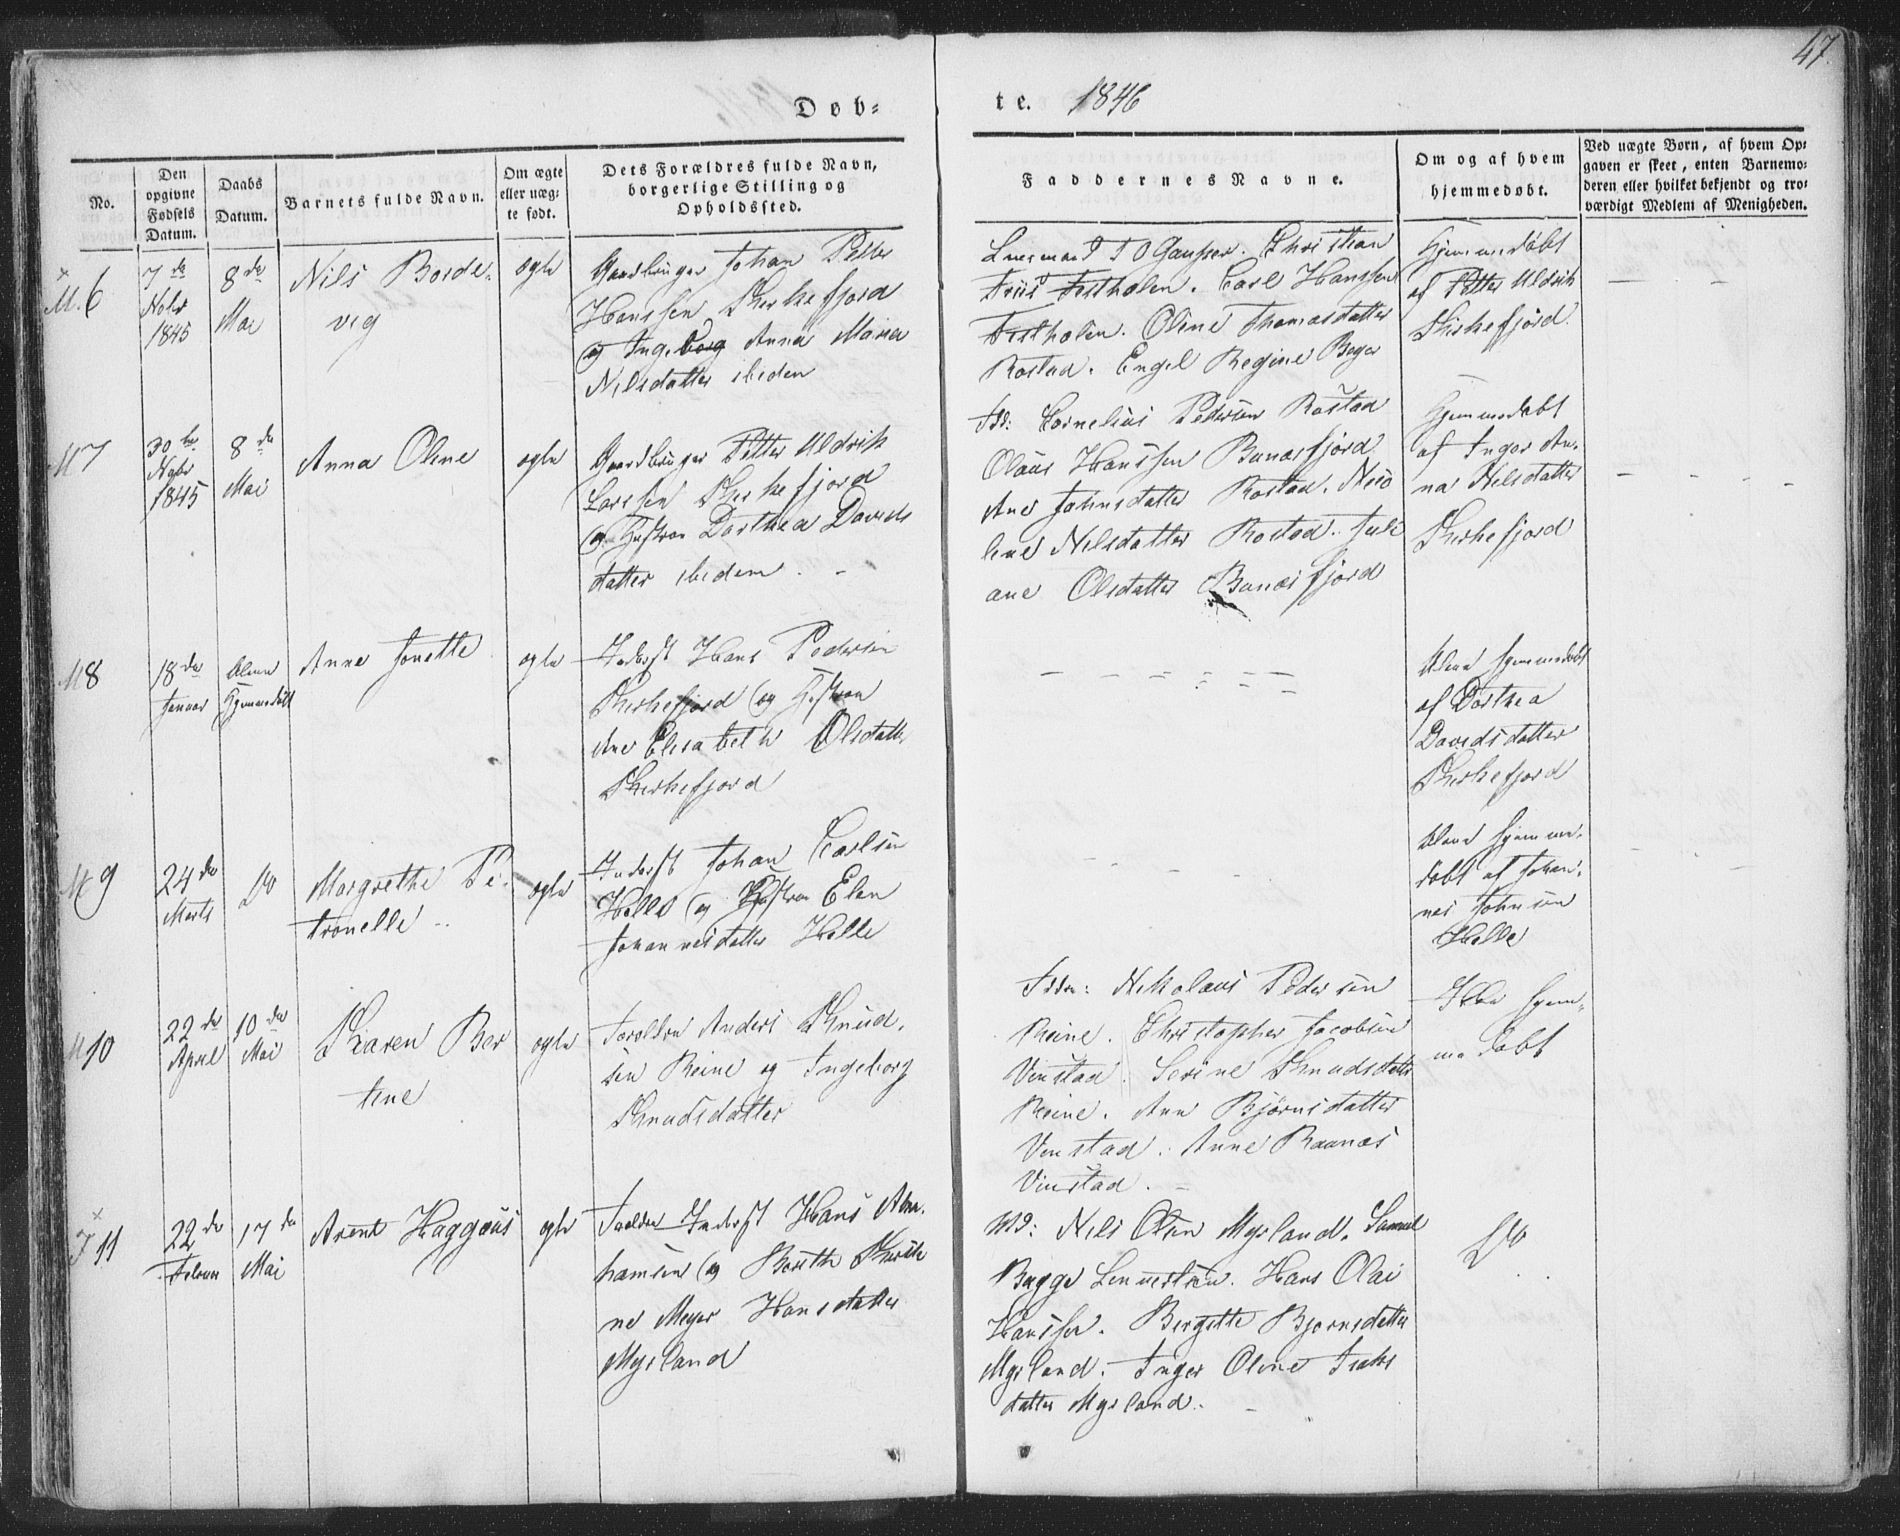 47.
Døb=
te. 1846
No.
Den
opgivne
Fødsels
Datum.
Daabs
Datum.
Barnets fulde Navn.
Om ægte
eller uæg-
te født.
Dets Forældres fulde Navn,
borgerlige Stilling og
Opholdssted.
Faddernes Navne.
Om og af hvem
hjemmedøbt.
Ved uægte Børn, af hvem Op-
gaven er skeet, enten Barnemo-
deren eller hvilket bekjendt og tro-
værdigt Medlem af Menigheden.
M. 6
7de
Nobr
1845
8de
Mai
Nils Borde-
vig
ægte
Gaardbruger Johan Petter
Hanssen Kirkefjord
og Ingeborg Anna Maria
Nilsdatter ibiden
Christian
Friis Festholen. Carl Hanssen
Festholen. Oline Thomasdatter
Rostad. Engel Regine Beyer
Hjemmedøbt
af Petter Uldrik
Kirkefjord.
M 7
30te
Nobr
1845
8de
Mai
Anna Oline
ægte
Gaardbruger Petter Uldrik
Larssen Kirkefjord
og Hustrue Dorthea Davids
datter ibidem. -
Fdd: Cornelius Pedersen Rostad
Olaus Hanssen Bunæsfjord
Ane Johnsdatter Rostad. Nico
line Nilsdatter Rostad. Juli
ane Olsdatter Bunæsfjord
Hjemmedøbt
af Inger An-
na Nilsdatter
Kirkefjord
M 8
18de
Januar
blevn
Hjemmedøbt
Anne Jonette
ægte
Inderst Hans Pedersen
Kirkefjord og Hustrue
Ane Elisabeth Olsdatter
Kirkefjord
Hjemmedøbt
af Dorthea
Davidsdatter
Kirkefjord
M 9
24de
Marts
Do
Margrethe Pe-
tronelle
ægte
Inderst Johan Carlsen
Helle og Hustrue Elen
Johannesdatter Helle
Hjemme-
døbt af Johan-
nes Johnsen
Helle
M 10
22de
April
10de
Mai
Karen Ber
tine
ægte
Forældre Anders Knud-
sen Reine og Ingeborg
Knudsdatter
Fddr: Nikolaus Pedersen
Reine. Christopher Jacobsen
Vinstad. Serine Knudsdatter
Reine. Ane Bjørnsdatter
Vinstad. Anne Raanæs
Vinstad.
Ikke Hjem-
medøbt
11
22de
Februar
17de
Mai
Arent Haggæus
ægte
Forældre Inderst Hans Abra-
hamsen og Berithe Kirsti
ne Meyer Hansdatter
Myrland
Nils Olsen Myrland. Samuel
Bugge Lennertsen. Hans Olai
Hanssen. Bergitte Bjørnsdatter
Myrland. Inger Oline Isaks
datter Myrland.
Do